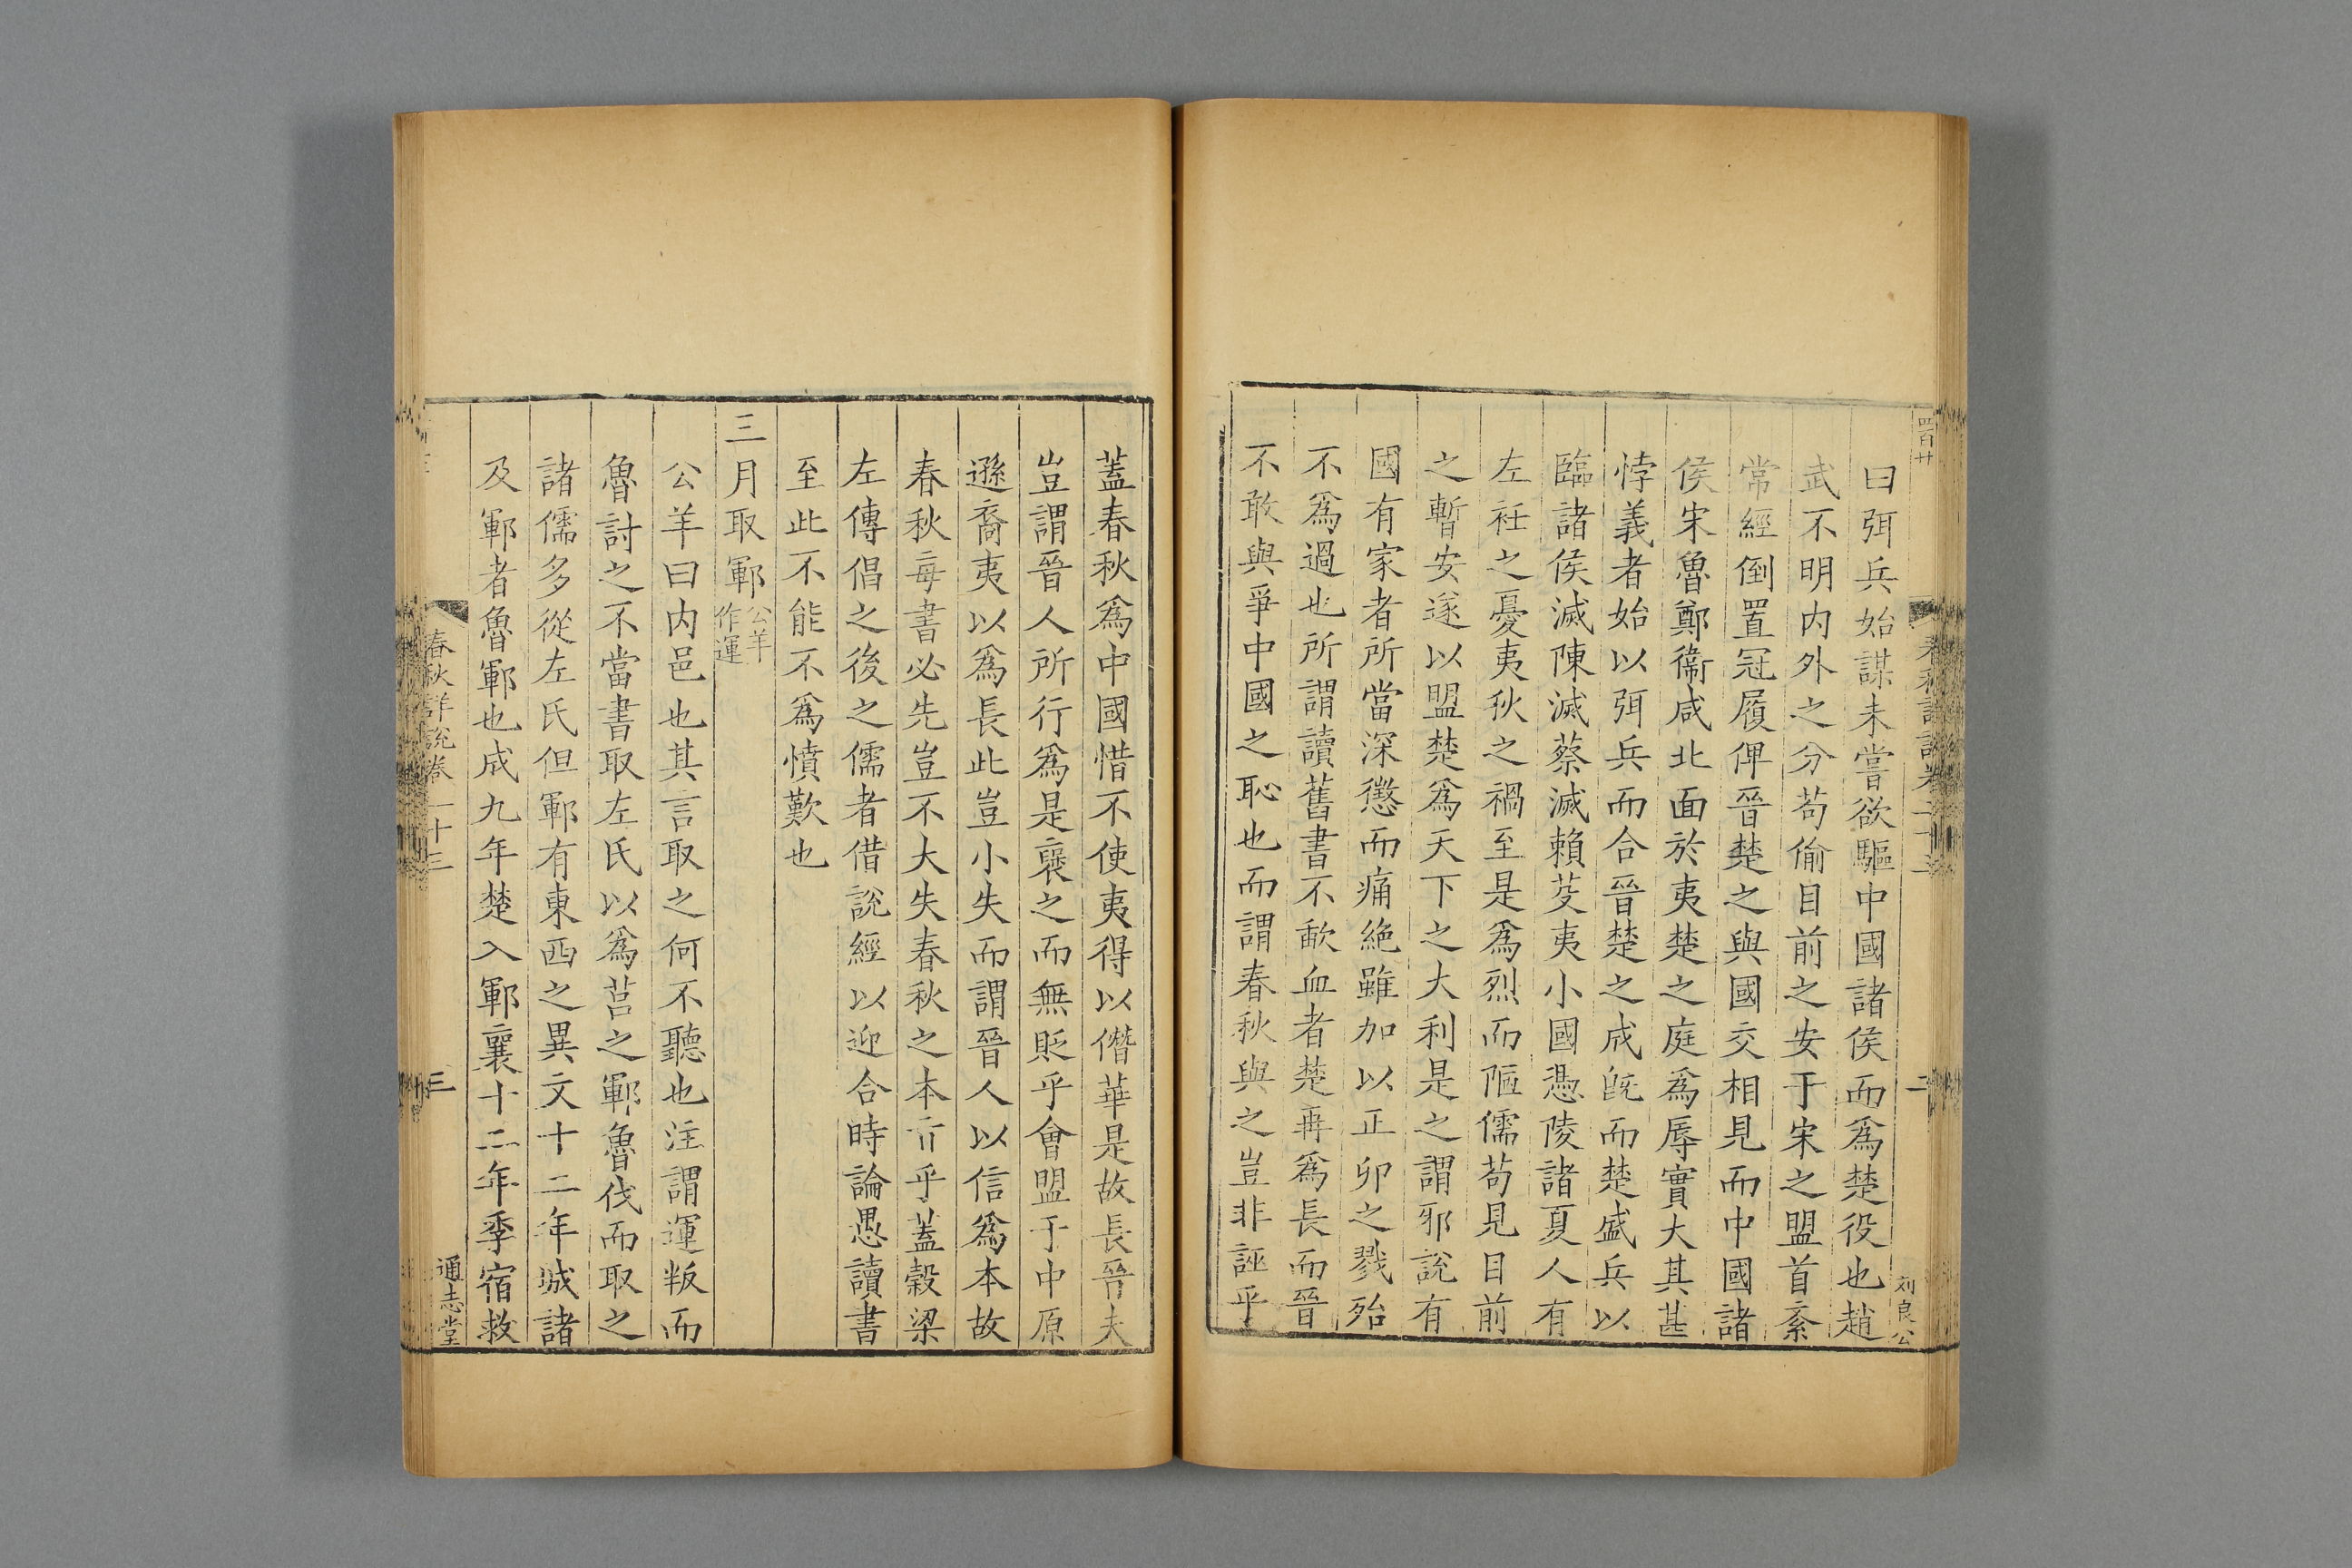 四百廿
春秋詳說卷二十三
二
刘良公
曰弭兵始謀未嘗欲驅中國諸侯而爲楚役也趙
武不明内外之分苟偷目前之安于宋之盟首紊
常經倒置冠履俾晉楚之與國交相見而中國諸
侯宋魯鄭衞咸北面於夷楚之庭爲辱實大其甚
悖義者始以弭兵而合晉楚之成旣而楚盛兵以
臨諸侯滅陳滅蔡滅賴芟夷小國憑陵諸夏人有
左衽之憂夷狄之禍至是爲烈而陋儒苟見目前
之暫安遂以盟楚爲天下之大利是之謂邪說有
國有家者所當深懲而痛絕雖加以正卯之戮殆
不爲過也所謂讀舊書不歃血者楚再爲長而晉
不敢與爭中國之恥也而謂春秋與之豈非誣乎
蓋春秋爲中國惜不使夷得以僭華是故長晉夫
豈謂晉人所行爲是襃之而無貶乎會盟于中原
遜裔夷以爲長此豈小失而謂晉人以信爲本故
春秋每書必先豈不大失春秋之本㫖乎蓋穀梁
左傳倡之後之儒者借說經以迎合時論愚讀書
至此不能不爲憤歎也
三月取鄆公羊作運
公羊曰内邑也其言取之何不聽也注謂運叛而
魯討之不當書取左氏以爲莒之鄆魯伐而取之
諸儒多從左氏但鄆有東西之異文十二年城諸
及鄆者魯鄆也成九年楚入鄆襄十二年季宿救
春秋詳說卷二十三
三
通志堂